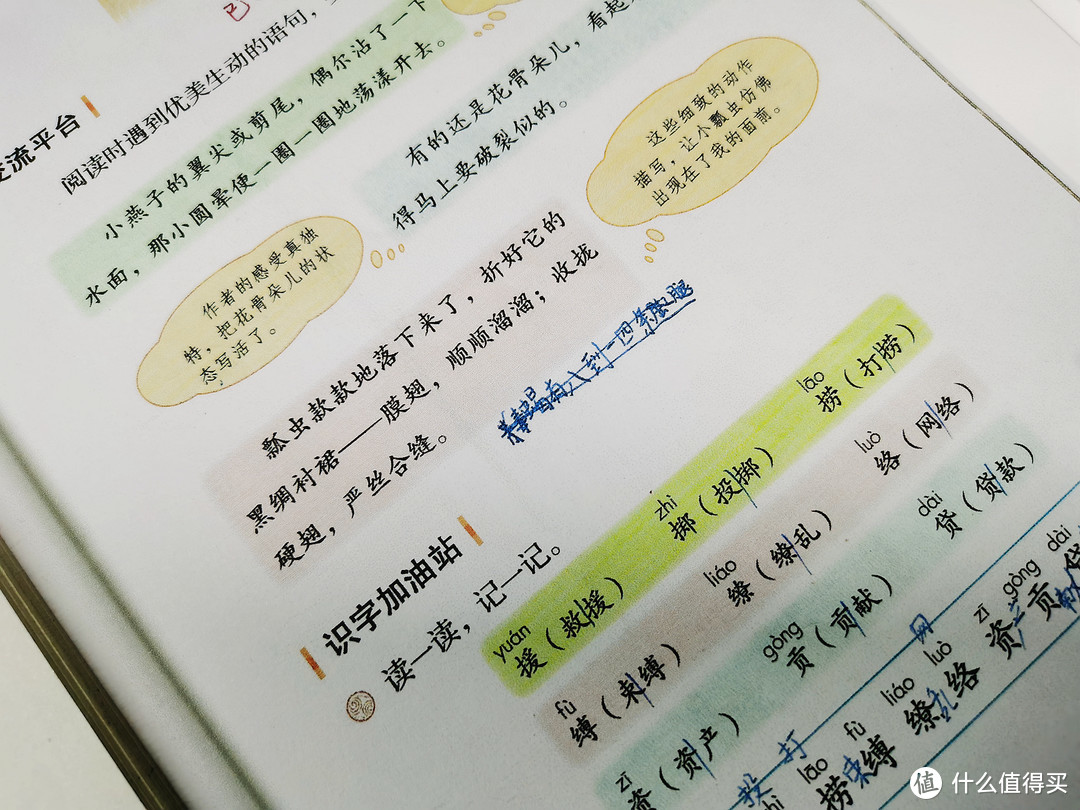 交流平台
阅读时遇到优美生动的语句,
小燕子的翼尖或剪尾,偶尔沾了一下
水面,那小圆晕便一圈一圈地荡漾开去。
有的还是花骨朵儿,看起
得马上要破裂似的。
作者的感受真独
特,把花骨朵儿的状
态写活了。
这些细致的动作
描写,让小瓢虫仿佛
出现在了我的面前。
瓢虫款款地落下来了,折好它的
黑绸衬裙——膜翅,顺顺溜溜;收拢
硬翅,严丝合缝。
识字加油站
读一读,记一记。
yuán zhì lāo
援(救援) 掷(投掷) 捞(打捞)
fù liáo luò
缚(束缚) 缭(缭乱) 络(网络)
zī gòng dài
资(资产) 贡(贡献) 贷(贷款)
lāo fù liáo luò zī gòng dài
投 打捞 束缚 缭乱 网络 资产 贡
值 什么值得买